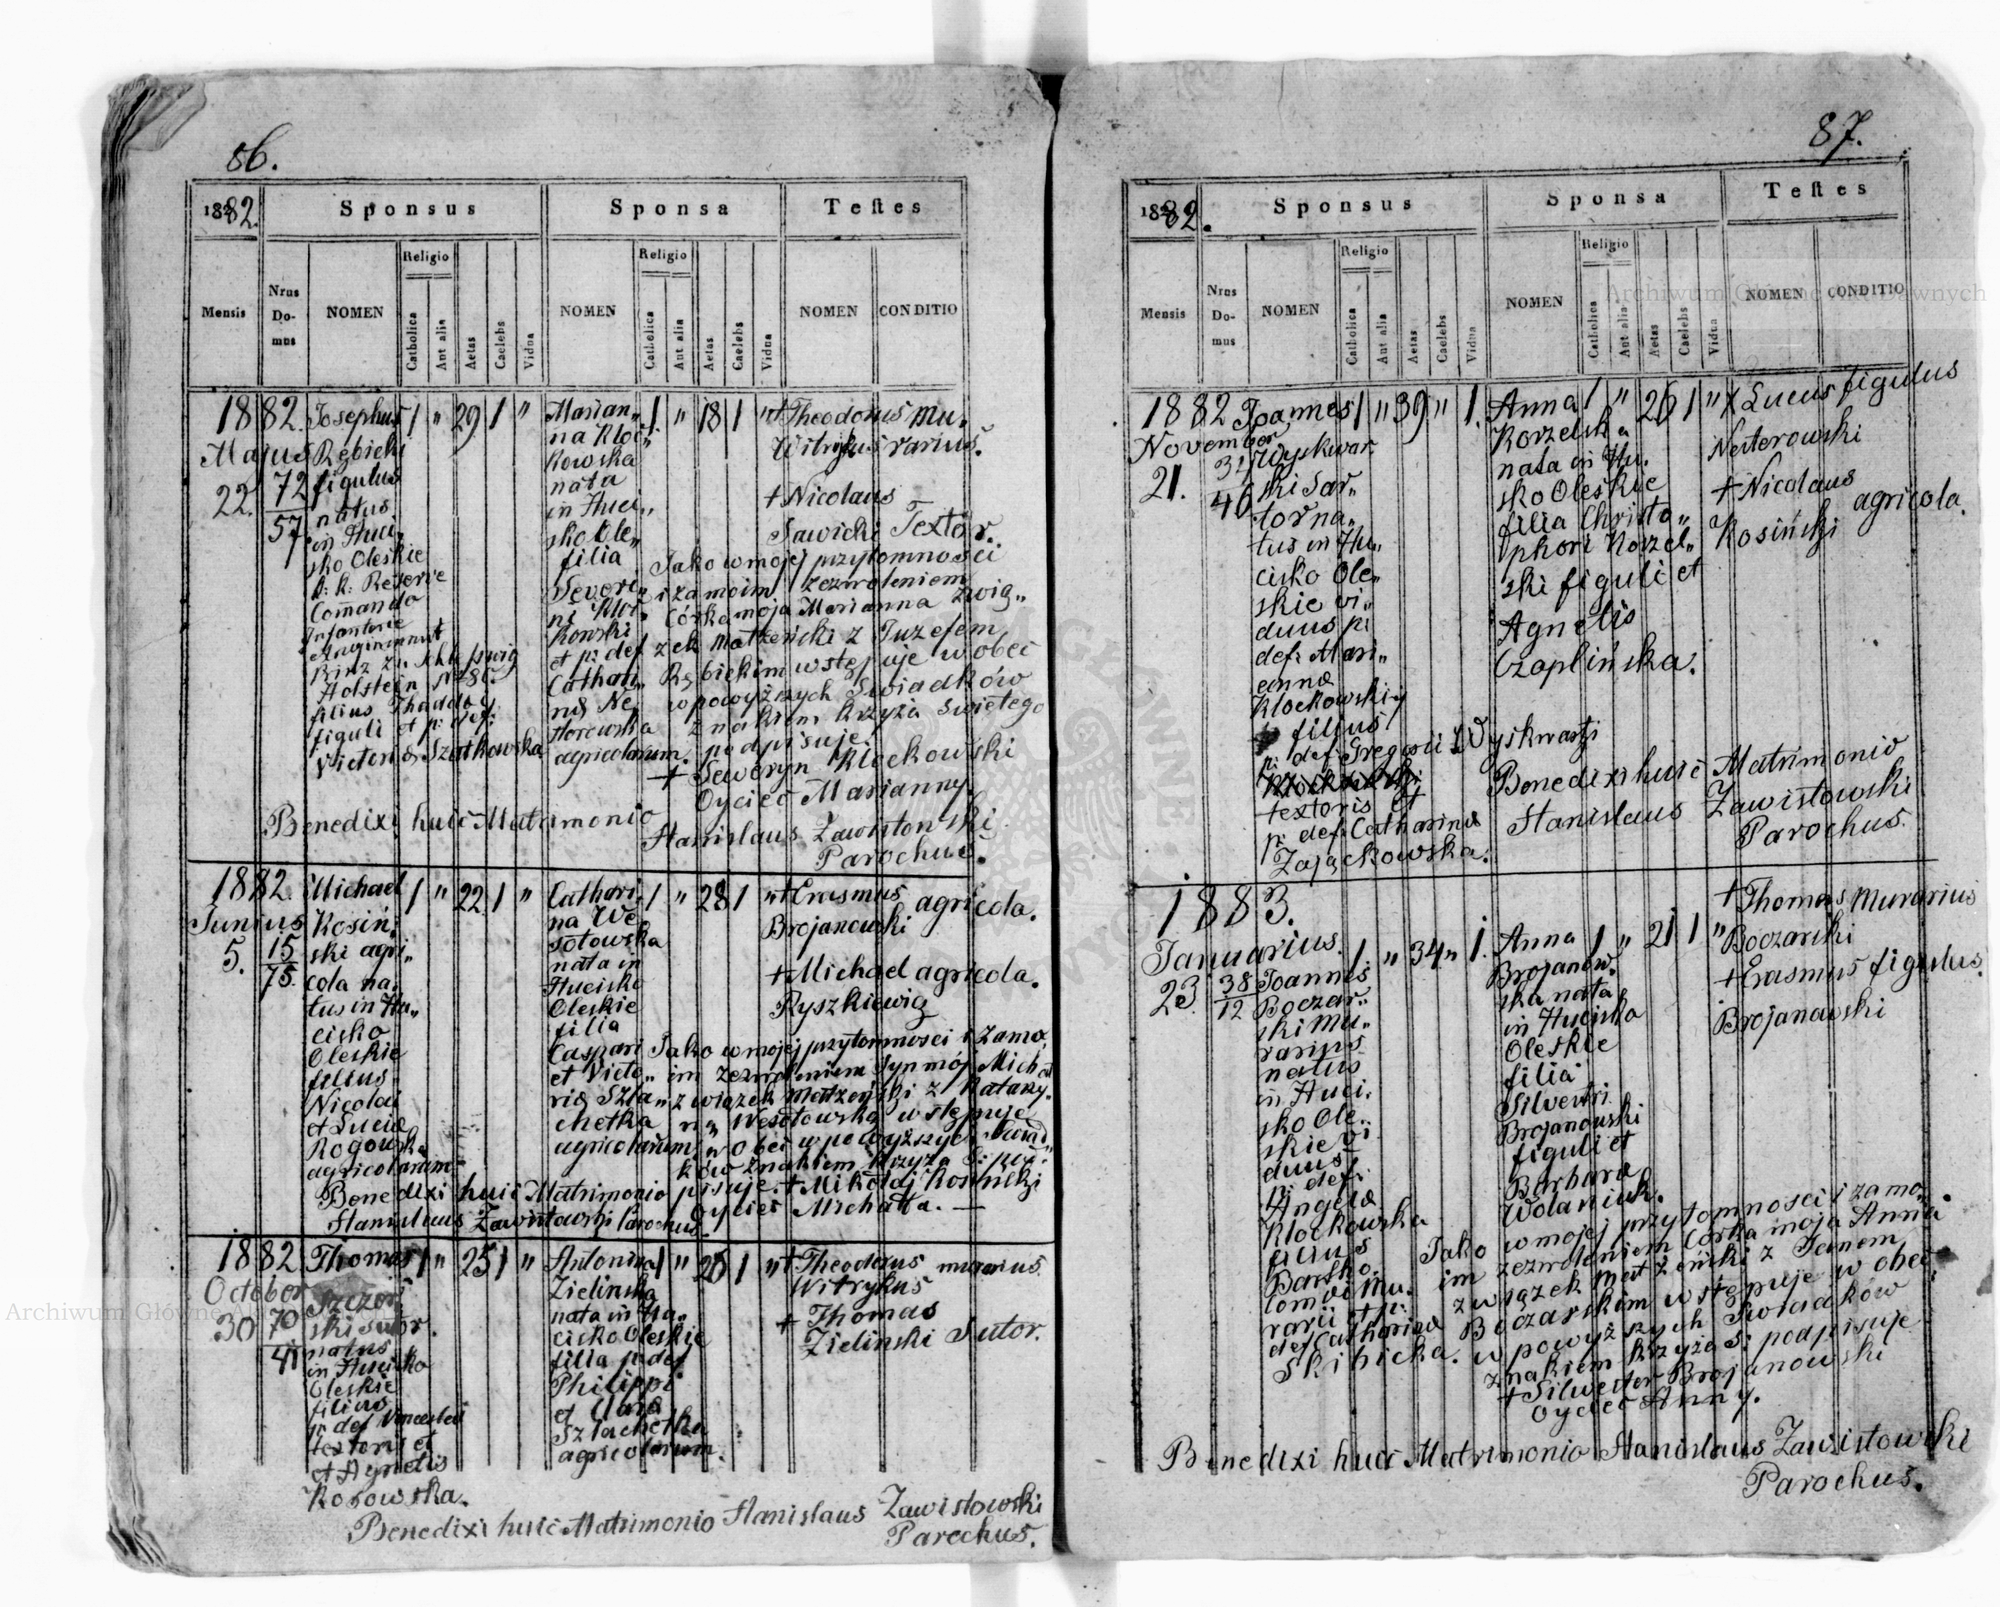 86.
1882.
Sponsus
Sponsa
Testes
Mensis
Nrus Domus
NOMEN
Religio
Catholica
Aut alia
Aetas
Caelebs
Vidua
NOMEN
Religio
Catholica
Aut alia
Aetas
Caelebs
Vidua
NOMEN
CONDITIO
1882.
Majus
22.
72
57
Josephus
Rębicki
figulus
natus
in Huci„
sko Oleskie
k: k: Reserve
Comando
Infanterie
Regiment
Prinz zu Schleswig
Holstein N: 80.
filius Thaddei
figuli et p: def:
Victoriæ Szatkowska
1 „ 29 1 „
Marian„
na Kloc„
kowska
nata
in Huci„
sko Ole„
filia
Severi„
ni Kloc„
kowski
et p: def:
Cathari„
næ Ne„
storowska
agricolarum.
1 „ 18 1 „
+ Theodorus mu„
Witrykus rarius.
+ Nicolaus
Sawicki Textor.
Jako w mojej przytomności
i za moim zezwoleniem
Córka moja Marianna zwią„
zek małżeński z Juzefem
Rębickim wstępuje w obec
powyższych Swiadków
znakiem krzyża Swiętego
podpisuje.
+ Seweryn Klockowski
Oyciec Marianny.
Benedixi huic Matrimonio
Stanislaus Zawistowski
Parochus.
1882.
Junius
5.
15
75.
Michael
Kosiń„
ski agri„
cola na„
tus in Hu„
cisko
Oleskie
filius
Nicolai
et Luciæ
Rogowska
agricolarum
1 „ 22 1 „
Cathari„
na We„
sołowska
nata in
Hucisko
Oleskie
filia
Caspari
et Victo„
riæ Szla„
chetka
agricolarum
1 „ 28 1 „
+ Erasmus agricola.
Brojanowski
+ Michael agricola.
Ryszkiewicz
Jako w mojej przytomności i zamo„
im zezwoleniem Syn mój Michał
związek małżeński z Katarzy„
ną Wesołowską wstępuje
w obec powyższych Swiad„
ków znakiem Krzyża S: pod„
pisuje. + Mikołaj Kosiński
Oyciec Michała. —
Benedixi huic Matrimonio
Stanislaus Zawistowski Parochus.
1882
October
30
70
41
Thomas
Szczor„
ski sutor.
natus
in Hucisko
Oleskie
filius
p: def: Vincentii
textoris et
et Agnetis
Kosowska.
1 „ 25 1 „
Antonina
Zielinska
nata in Hu„
cisko Oleskie
filia p: def:
Philippi
et Clara
Szlachetka
agricolarum.
1 „ 26 1 „
+ Theodorus murarius.
Witrykus
+ Thomas
Zielinski Sutor.
Benedixi huic Matrimonio Stanislaus Zawistowski
Parochus.
87.
1882.
Sponsus
Sponsa
Testes
Mensis
Nrus Domus
NOMEN
Religio
Catholica
Aut alia
Aetas
Caelebs
Vidua
NOMEN
Religio
Catholica
Aut alia
Aetas
Caelebs
Vidua
NOMEN
CONDITIO
1882
November
21.
31
46
Joannes
Wyskwar„
ski Sar„
tor na„
tus in Hu„
cisko Ole„
skie vi„
duus p:
def: Mari„
annæ
Klockowski
filius
p: def: Gregorii Wyskwarski
textoris et
p: def: Catharinæ
Zajączkowska.
1 „ 39 „ 1.
Anna
Korzelska
nata in Hu„
sko Oleskie
filia Christo„
phori Korzel„
ski figuli et
Agnetis
Czaplińska.
1 „ 26 1 „
+ Lucas figulus
Nesterowski
+ Nicolaus agricola.
Kosiński
Benedixi huic Matrimonio
Stanislaus Zawistowski
Parochus.
1883.
Januarius.
23.
38
12
Joannes
Boczar„
ski Mu„
rarius
natus
in Huci„
sko Ole„
skie vi
duus
p: def:
Angelæ
Klockowska
filius
Bartho„
lomei Mu„
rarii et p:
def: Catharinæ
Skibicka.
1 „ 34 „ 1.
Anna
Brojanow„
ska nata
in Hucisko
Oleskie
filia
Silvestri
Brojanowski
figuli et
Barbara
Wolaniuk.
1 „ 21 1 „
+ Thomas Murarius
Boczarski
+ Erasmus figulus.
Brojanowski
Jako w mojej przytomności i zamo„
im zezwoleniem Córka moja Anna
związek małżeński z Janem
Boczarskim wstępuje w obec
powyższych Swiadków
znakiem Krzyża S: podpisuje
+ Silwester Brojanowski
Oyciec Anny.
Benedixi huic Matrimonio Stanislaus Zawistowski
Parochus.